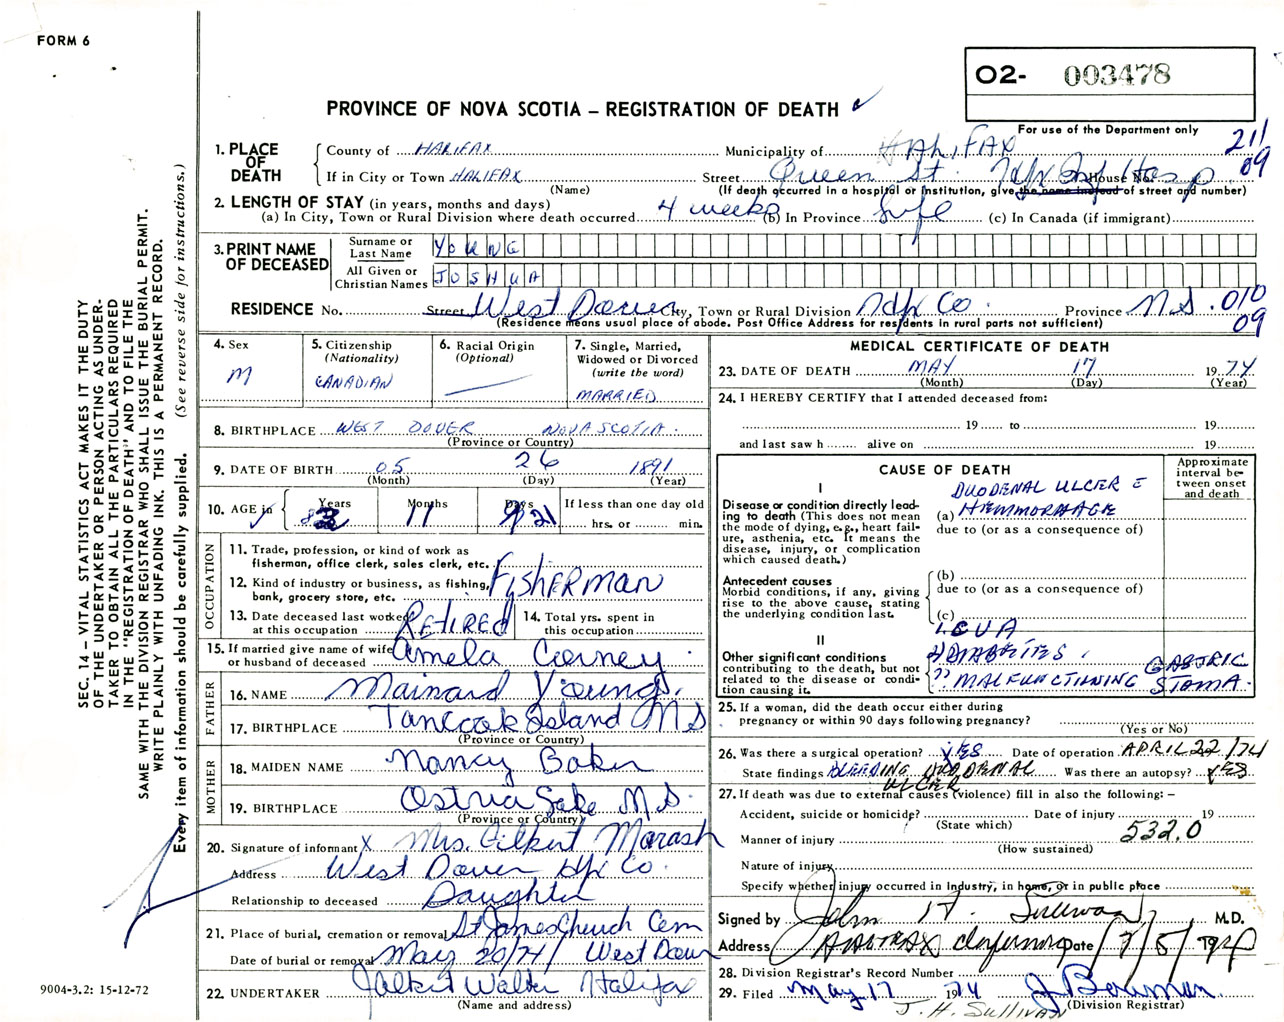 FORM 6
O2- 003478
PROVINCE OF NOVA SCOTIA – REGISTRATION OF DEATH ✓
For use of the Department only
211
09
1. PLACE OF DEATH
County of HARIFAX Municipality of HALIFAX
If in City or Town HALIFAX Street Queen St. Hfx Inf Hosp House No.
(Name) (If death occurred in a hospital or institution, give the name instead of street and number)
2. LENGTH OF STAY (in years, months and days)
(a) In City, Town or Rural Division where death occurred 4 weeks (b) In Province Life (c) In Canada (if immigrant)
3. PRINT NAME OF DECEASED
Surname or Last Name YOUNG
All Given or Christian Names JOSHUA
RESIDENCE No. Street West Dover City, Town or Rural Division Hfx Co. Province N.S. 010
09
(Residence means usual place of abode. Post Office Address for residents in rural parts not sufficient)
4. Sex M
5. Citizenship (Nationality) CANADIAN
6. Racial Origin (Optional)
7. Single, Married, Widowed or Divorced (write the word) MARRIED
8. BIRTHPLACE WEST DOVER NOVA SCOTIA.
(Province or Country)
9. DATE OF BIRTH 05 26 1891
(Month) (Day) (Year)
10. AGE in Years 82 Months 11 Days 21 If less than one day old
hrs. or min.
OCCUPATION
11. Trade, profession, or kind of work as fisherman, office clerk, sales clerk, etc.
12. Kind of industry or business, as fishing, bank, grocery store, etc. FISHERMAN
13. Date deceased last worked at this occupation RETIRED 14. Total yrs. spent in this occupation
15. If married give name of wife or husband of deceased Amela Corney
FATHER
16. NAME Mainard Young.
17. BIRTHPLACE Tancook Island N S
(Province or Country)
MOTHER
18. MAIDEN NAME Nancy Baker
19. BIRTHPLACE N.S.
(Province or Country)
20. Signature of informant x Mrs. Gilbert Marash
Address West Dover Hfx Co.
Relationship to deceased Daughter
21. Place of burial, cremation or removal St James Church Cem
Date of burial or removal May 20/74 West Dover
22. UNDERTAKER Walter Halifax
(Name and address)
MEDICAL CERTIFICATE OF DEATH
23. DATE OF DEATH MAY 17 19 74
(Month) (Day) (Year)
24. I HEREBY CERTIFY that I attended deceased from:
19 to 19
and last saw h alive on 19
CAUSE OF DEATH
Approximate interval between onset and death
I
Disease or condition directly leading to death (This does not mean the mode of dying, e.g., heart failure, asthenia, etc. It means the disease, injury, or complication which caused death.)
DUODENAL ULCER c
(a) HEMMORHAGE
due to (or as a consequence of)
Antecedent causes
Morbid conditions, if any, giving rise to the above cause, stating the underlying condition last.
(b)
due to (or as a consequence of)
(c)
II
Other significant conditions contributing to the death, but not related to the disease or condition causing it.
1. CVA
2) DIABETES.
?? MALFUNCTIONING GASTRIC STOMA.
25. If a woman, did the death occur either during pregnancy or within 90 days following pregnancy?
(Yes or No)
26. Was there a surgical operation? YES Date of operation APRIL 22/74
State findings BLEEDING DUODENAL ULCER Was there an autopsy? YES
27. If death was due to external causes (violence) fill in also the following: –
Accident, suicide or homicide? Date of injury 19
(State which)
Manner of injury 532.0
(How sustained)
Nature of injury
Specify whether injury occurred in Industry, in home, or in public place
Signed by John H. Sullivan M.D.
Address HALIFAX Infirmary Date 17/5/ 19 74
28. Division Registrar's Record Number
29. Filed May 17 19 74 J Bowman.
(Division Registrar)
J. H. SULLIVAN
SEC. 14 – VITAL STATISTICS ACT MAKES IT THE DUTY
OF THE UNDERTAKER OR PERSON ACTING AS UNDER-
TAKER TO OBTAIN ALL THE PARTICULARS REQUIRED
IN THE "REGISTRATION OF DEATH" AND TO FILE THE
SAME WITH THE DIVISION REGISTRAR WHO SHALL ISSUE THE BURIAL PERMIT.
WRITE PLAINLY WITH UNFADING INK. THIS IS A PERMANENT RECORD.
Every item of information should be carefully supplied. (See reverse side for instructions.)
9004-3.2: 15-12-72